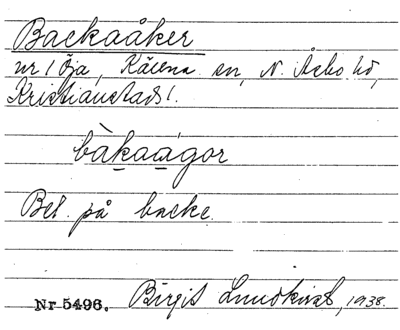 Backaåker
nr 1 Öja, Källna sn, N. Åsbo hd,
Kristianstads l.
bàkaágor
Bel. på backe.
Nr 5496. Birgit Lundkvist, 1938.